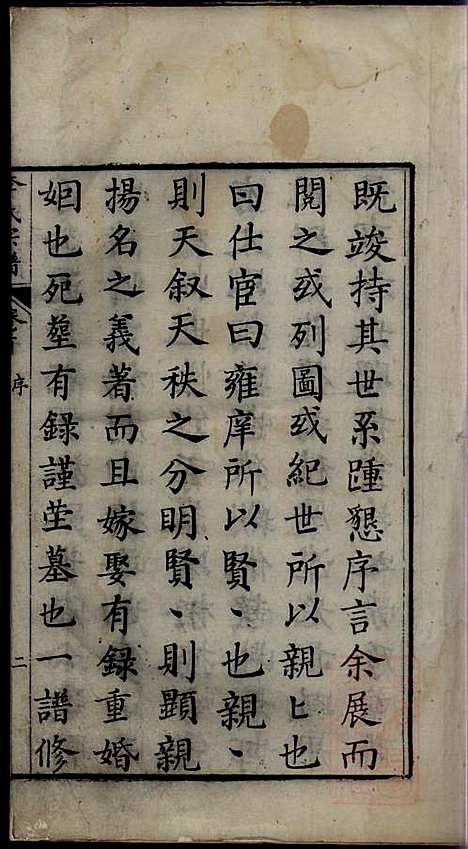 既竣持其世系踵懇序言余展而
閱之或列圖或紀世所以親匕也
曰仕宦曰雍庠所以賢丶也親丶
則天叙天秩之分明賢丶則顯親
揚名之義著而且嫁娶有録重婚
姻也死塟有録謹茔墓也一譜修
氏宗譜
序
二